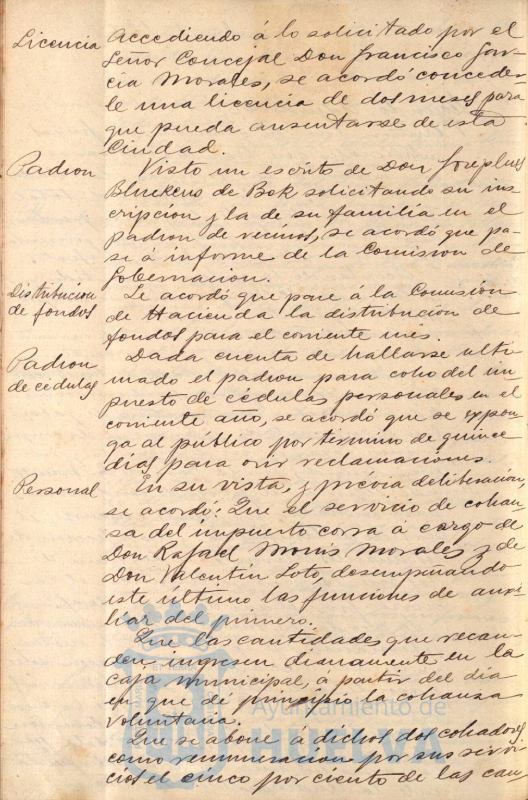 Licencia Accediendo á lo solicitado por el
Señor Concejal Don Francisco Gar-
cia Morales, se acordó conceder-
le una licencia de dos meses para
que pueda ausentarse de esta
Ciudad.
Padron Visto un escrito de Don Josephus
Bluekens de Bok solicitando su ins
cripcion y la de su familia en el
padron de vecinos, se acordó que pa-
se á informe de la Comision de
Gobernacion.
Distribucion Se acordó que pase á la Comisión
de fondos de Hacienda la distribucion de
fondos para el corriente mes.
Padron Dada cuenta de hallarse ulti-
de cédulas mado el padron para cobro del im-
puesto de cédulas personales en el
corriente año, se acordó que se expon-
ga al público por término de quince
dias para oir reclamaciones.
Personal En su vista, y prévia deliberación,
se acordó: Que el servicio de cobran-
sa del impuesto corra á cargo de
Don Rafael Monis Morales y de
Don Valentin Soto, desempeñando
este último las funciones de auxi-
liar del primero.
Que las cantidades que recau-
den ingresen diariamente en la
caja municipal, a partir del dia
en que dé principio la cobranza
voluntaria.
Que se abone á dichos dos cobradores
como remuneracion por sus servi-
cios el cinco por ciento de las can
Ayuntamiento de
HUELVA